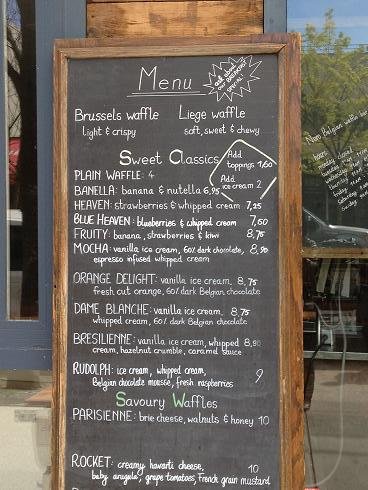 Menu
ask about
our BREAKFAST
SPECIAL!
Brussels waffle
light & crispy
Liege waffle
soft, sweet & chewy
Sweet Classics
Add
toppings 1,60
Add
ice cream 2
PLAIN WAFFLE: 4
BANELLA: banana & nutella 6,95
HEAVEN: strawberries & whipped cream 7,25
BLUE HEAVEN: blueberries & whipped cream 7,60
FRUITY: banana, strawberries & kiwi 8,75
MOCHA: vanilla ice cream, 60% dark chocolate, 8,90
espresso infused whipped cream
ORANGE DELIGHT: vanilla ice cream, 8,75
fresh cut orange, 60% dark Belgian chocolate
DAME BLANCHE: vanilla ice cream, 8,75
whipped cream, 60% dark Belgian chocolate
BRESILIENNE: vanilla ice cream, whipped 8,90
cream, hazelnut crumble, caramel sauce
RUDOLPH: ice cream, whipped cream, 9
Belgian chocolate mousse, fresh raspberries
Savoury Waffles
PARISIENNE: brie cheese, walnuts & honey 10
ROCKET: creamy havarti cheese, 10
baby arugula, grape tomatoes, French grain mustard
Belgian waffle bar
hours